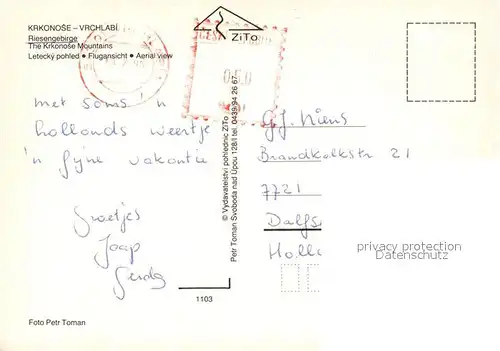 KRKONOŠE – VRCHLABÍ
Riesengebirge
The Krkonoše Mountains
Letecký pohled ● Flugansicht ● Aerial view
ZiTo
met soms 'n
hollands weertje
'n fijne vakantie
Groetjes
Jaap
Gerda
© Vydavatelství pohlednic ZiTo
Petr Toman Svoboda nad Úpou 128/I tel. 0439/94 26 67
G.J. Niens
Brandkolkstr 21
7721
Dalfs
Holl
privacy protection
Datenschutz
1103
Foto Petr Toman